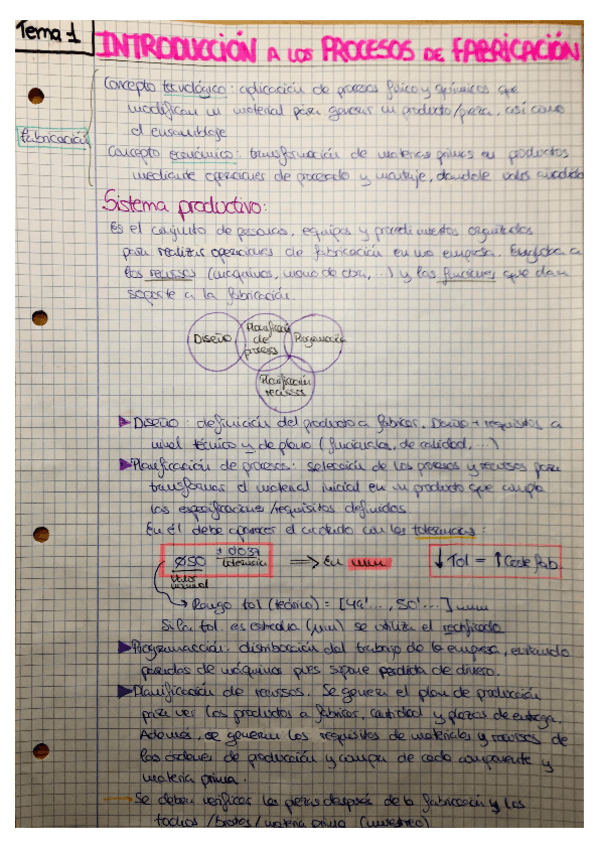 Tema 1
INTRODUCCIÓN A LOS PROCESOS DE FABRICACIÓN
Concepto tecnológico: aplicación de procesos físicos y químicos que
modifican un material para generar un producto/pieza, así como
el ensamblaje
Fabricación
Concepto económico: transformación de materias primas en productos
mediante operaciones de procesado y montaje, dándole valor añadido
Sistema productivo:
Es el conjunto de personas, equipos y procedimientos organizados
para realizar operaciones de fabricación en una empresa. Engloba a
los recursos (máquinas, mano de obra, ...) y las funciones que dan
soporte a la fabricación.
Diseño
Planificación
de
procesos
Programación
Planificación
recursos
Diseño: definición del producto a fabricar. Diseño + requisitos a
nivel técnico y de plano (funcionales, de calidad, ...)
Planificación de procesos: selección de los procesos y recursos para
transformar el material inicial en un producto que cumpla
las especificaciones/requisitos definidos.
En él debe aparecer el acotado con las tolerancias:
ø50 ± 0'037
tolerancia
⇒ En mm
↓ Tol = ↑ Coste fab
valor
nominal
Rango tol (teórico) = [49'..., 50'...] mm
Si la tol. es estrecha (μm) se utiliza el rectificado
Programación: distribución del trabajo de la empresa, evitando
paradas de máquinas pues supone pérdida de dinero.
Planificación de recursos. Se genera el plan de producción
para ver los productos a fabricar, cantidad y plazos de entrega.
Además, se generan los requisitos de materiales y recursos de
las órdenes de producción y compra de cada componente y
materia prima.
→ Se deben verificar las piezas después de la fabricación y los
tochos / / materia prima (muestreo)